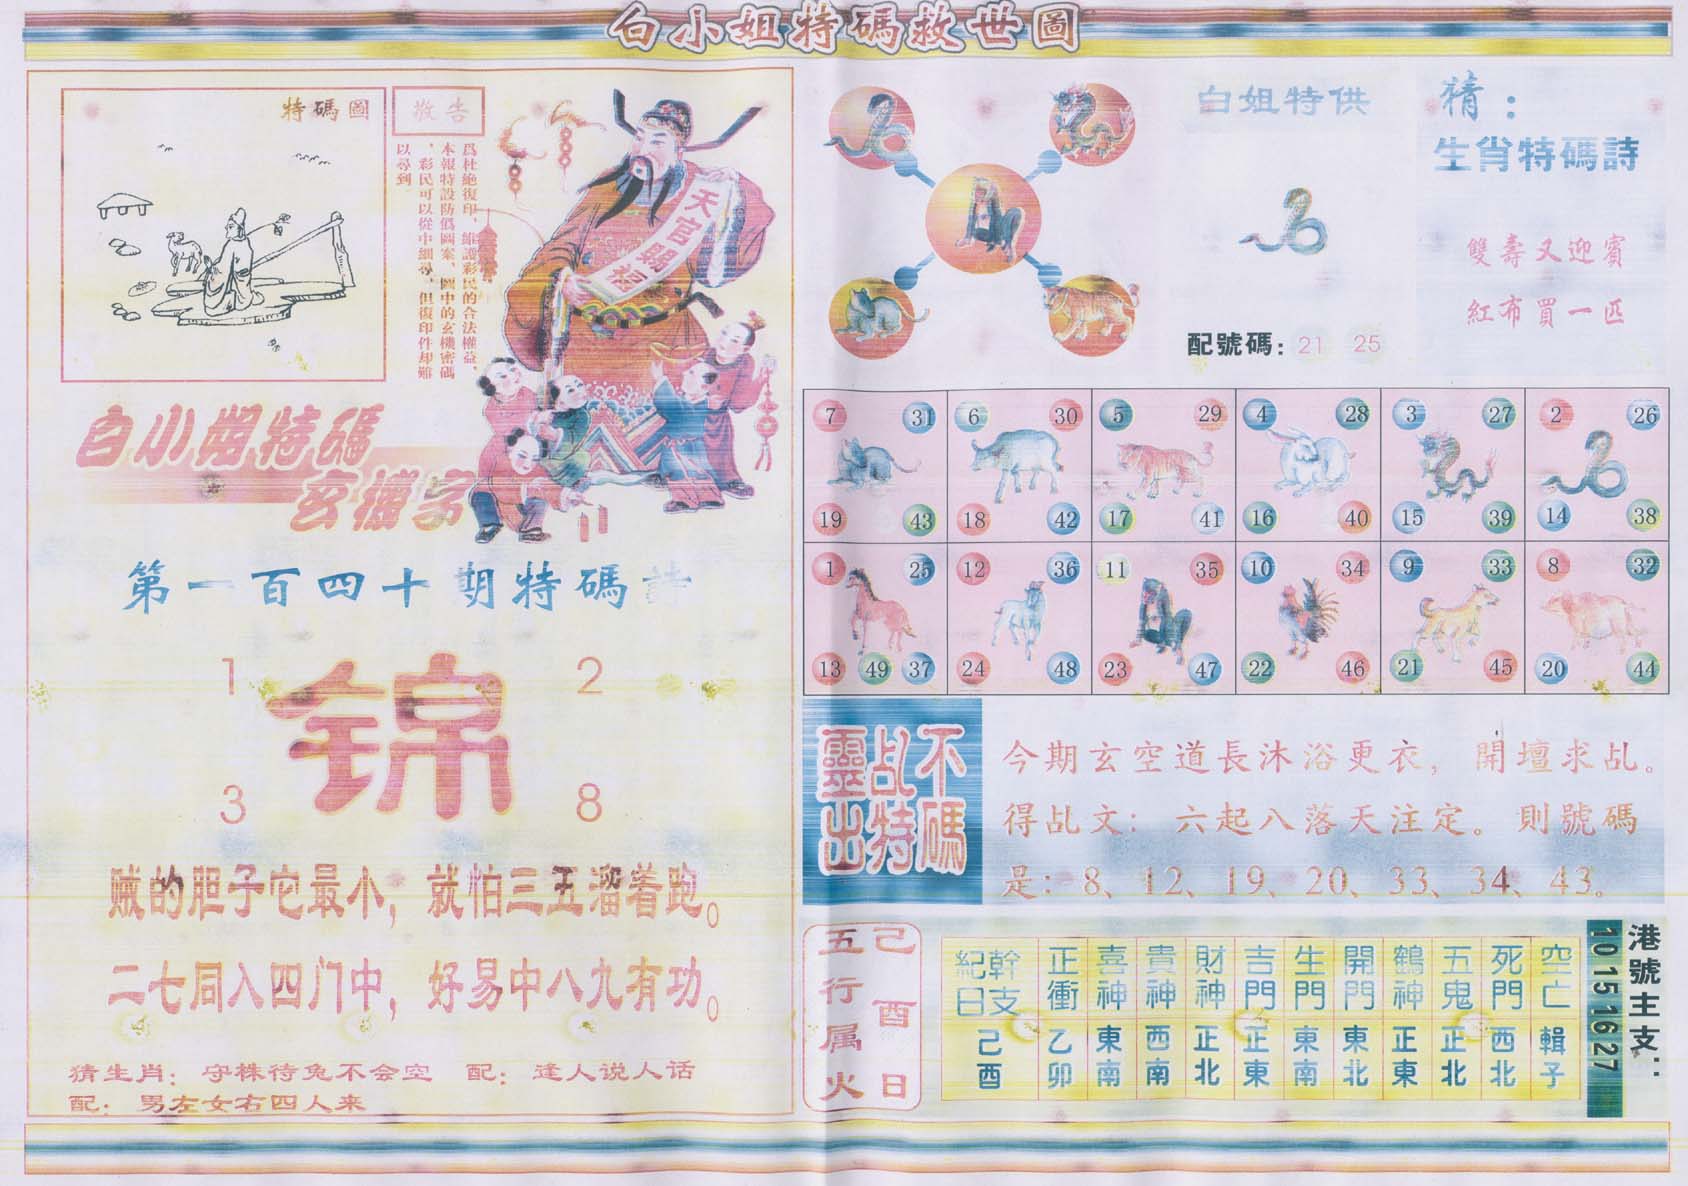 白小姐特碼救世圖
特碼圖
敬告
爲杜絶復印、維護彩民的合法權益，
本報特設防僞圖案、圖中的玄機密碼
，彩民可以從中細尋、但復印件却難
以尋到。
天官賜福
白小姐特碼
玄機字
第一百四十期特碼詩
1 2
锦
3 8
贼的胆子它最小，就怕三五溜着跑。
二七同入四门中，好易中八九有功。
猜生肖：守株待兔不会空 配：逢人说人话
配：男左女右四人来
白姐特供
配號碼：21 25
猜：
生肖特碼詩
雙壽又迎賓
紅布買一匹
7 31 6 30 5 29 4 28 3 27 2 26
19 43 18 42 17 41 16 40 15 39 14 38
1 25 12 36 11 35 10 34 9 33 8 32
13 49 37 24 48 23 47 22 46 21 45 20 44
靈乩不
出特碼
今期玄空道長沐浴更衣，開壇求乩。
得乩文：六起八落天注定。則號碼
是：8、12、19、20、33、34、43。
己酉日
五行属火
紀日幹支 正衝 喜神 貴神 財神 吉門 生門 開門 鶴神 五鬼 死門 空亡
己酉 乙卯 東南 西南 正北 正東 東南 東北 正東 正北 西北 輯子
港號主支：
10 15 16 27